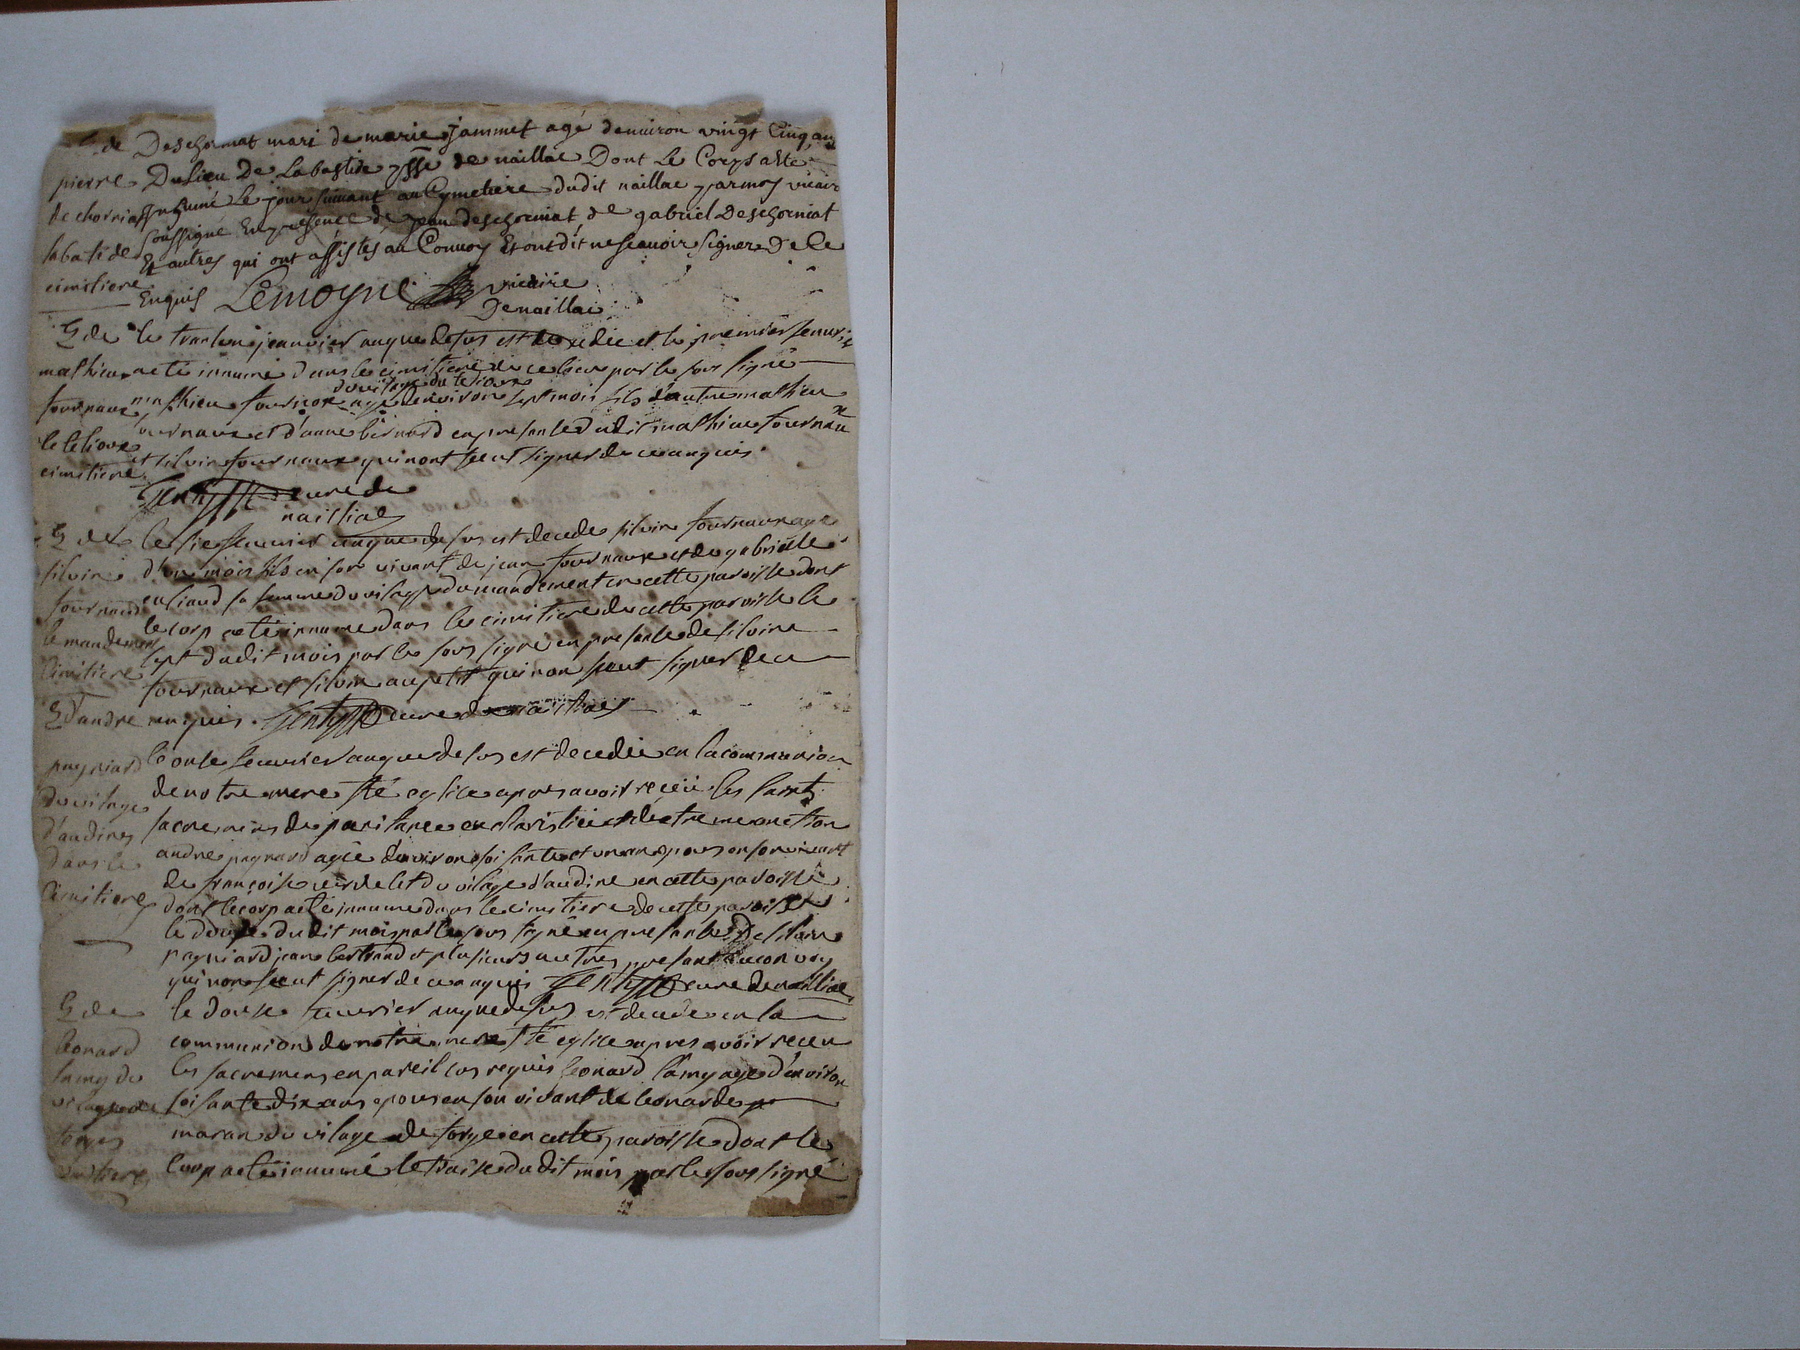 E. de Deschorniat mari de marie jammet agé denuiron vingt Cinq ans
pierre Du Lieu De Labastide psse de naillac Dont Le Corps a ete
de chorniat Inhumé Le jour suiuant au Cymetiere dudit naillac par moy vicaire
labatide soussigné En presence de jean deschorniat de gabriel Deschorniat
Et autres qui ont assistés au Conuoy Et ont dit ne scauoir signer De Ce
cimitiere Enquis Lemoyne vicaire
De naillac
E de le trante janvier auque desus est decedé et le premier feuurier
mathieu a eté innumé dans le cimitiere de ce lieu par le sous signé
du vilage du teliove
fournaux mathieu fournoux agé denviron sept mois fils d'autre mathieu
le teliove fournaux et d'anne bernard en presance dudit mathieu fournaux
cimitiere et silvin fournaux qui nont sceut signer de ce anquis
curé de
nailliac
E de le sis feuurier auque desus est decede silvin fournaux agé
silvin d'un mois fils en son vivant de jean fournaux et de gabrielle
fournaux sa femme du vilage du mandement en cette paroisse dont
le mandement le corp a eté innumé dans le cimitiere de cette paroisse le
cimitiere sept dudit mois par le sous signé en presance de silvin
fournaux et silvin aupetit qui non sceut signer de ce
E d'andre anquis curé de nailliac
pugniard le onse feuurier auque desus est decedée en la communion
du vilage de notre mere ste eglice apres avoir reçeü les saints
d'audines sacremens de penitance eucharistie et d'extreme onction
dans le andre pugnard agée d'environ soisante et un ans epous en son vivant
cimitiere de françoise du vilage d'audine en cette paroisse
dont le corp a eté innumé dans le cimitiere de cette paroisse
le douse dudit mois par le sous signé en presance de silvin
pugniard jean bertrand et plusieurs autres presant au convoy
qui non sceut signer de ce anquis curé de nailliac
E de le douse feuurier auque desus est decedé en la
leonard communion de notre mere ste eglice apres avoir receu
lamy du les sacremens en pareil cas requis leonard lamy agé d'environ
vilage de soisante dix ans epous en son vivant de leonarde
forges maran du vilage de forge en cette paroisse dont le
cimitiere corp a eté innumé le traise dudit mois par le sous signé